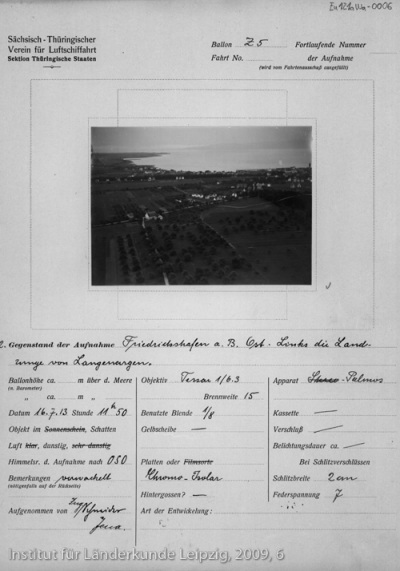 Sächsisch-Thüringischer
Verein für Luftschiffahrt
Sektion Thüringische Staaten
Ballon Z 5 Fortlaufende Nummer
Fahrt No. der Aufnahme
(wird vom Fahrtenausschuß ausgefüllt)
Gegenstand der Aufnahme Friedrichshafen a. B. Ost. Links die Land-
zunge von Langenargen.
Ballonhöhe ca. m über d. Meere
(n. Barometer)
" ca. m "
Datum 16.7.13 Stunde 11h 50
Objekt im Sonnenschein, Schatten
Luft klar, dunstig, sehr dunstig
Himmelsr. d. Aufnahme nach OSO
Bemerkungen verwackelt
(nötigenfalls auf der Rückseite)
Aufgenommen von Schneider
Jena.
Objektiv Tessar 1/6.3
Brennweite 15
Benutzte Blende 1/8
Gelbscheibe —
Platten oder Filmsorte
Chromo-Isolar
Hintergossen? —
Art der Entwickelung:
Apparat Palmos
Kassette —
Verschluß —
Belichtungsdauer ca. —
Bei Schlitzverschlüssen
Schlitzbreite 2 cm
Federspannung 7
Institut für Länderkunde Leipzig, 2009, 6